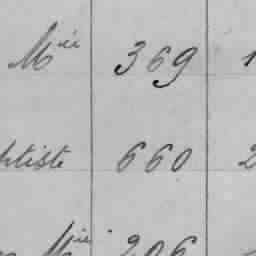 Mie 369 1
ptiste 660 2
Mie 206